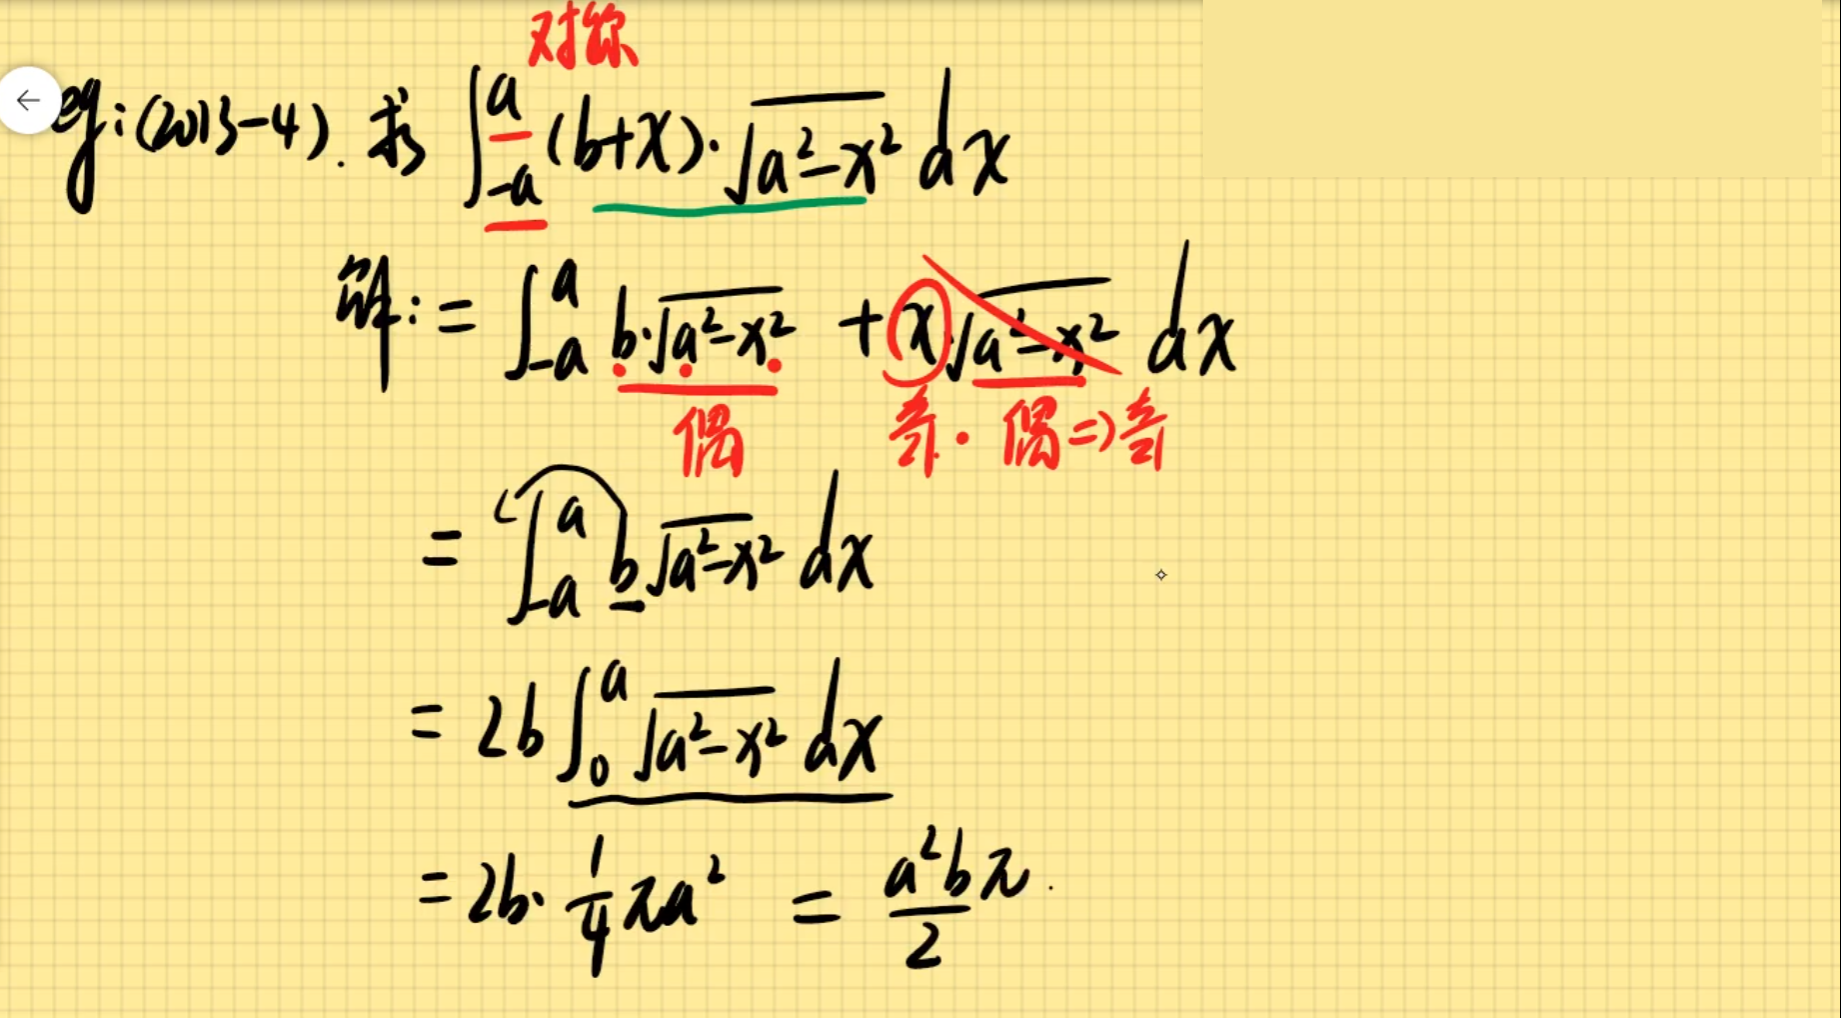 对称
eg:(2013-4). 求 ∫_{-a}^{a} (b+x)·√(a²-x²) dx
解: = ∫_{-a}^{a} b·√(a²-x²) + x·√(a²-x²) dx
偶 奇·偶=>奇
= ∫_{-a}^{a} b√(a²-x²) dx
= 2b ∫_{0}^{a} √(a²-x²) dx
= 2b· 1/4 πa² = a²b/2 π.